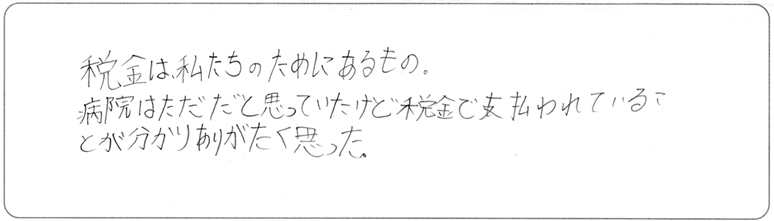 税金は、私たちのためにあるもの。
病院はただだと思っていたけど税金で支払われているこ
とが分かりありがたく思った。